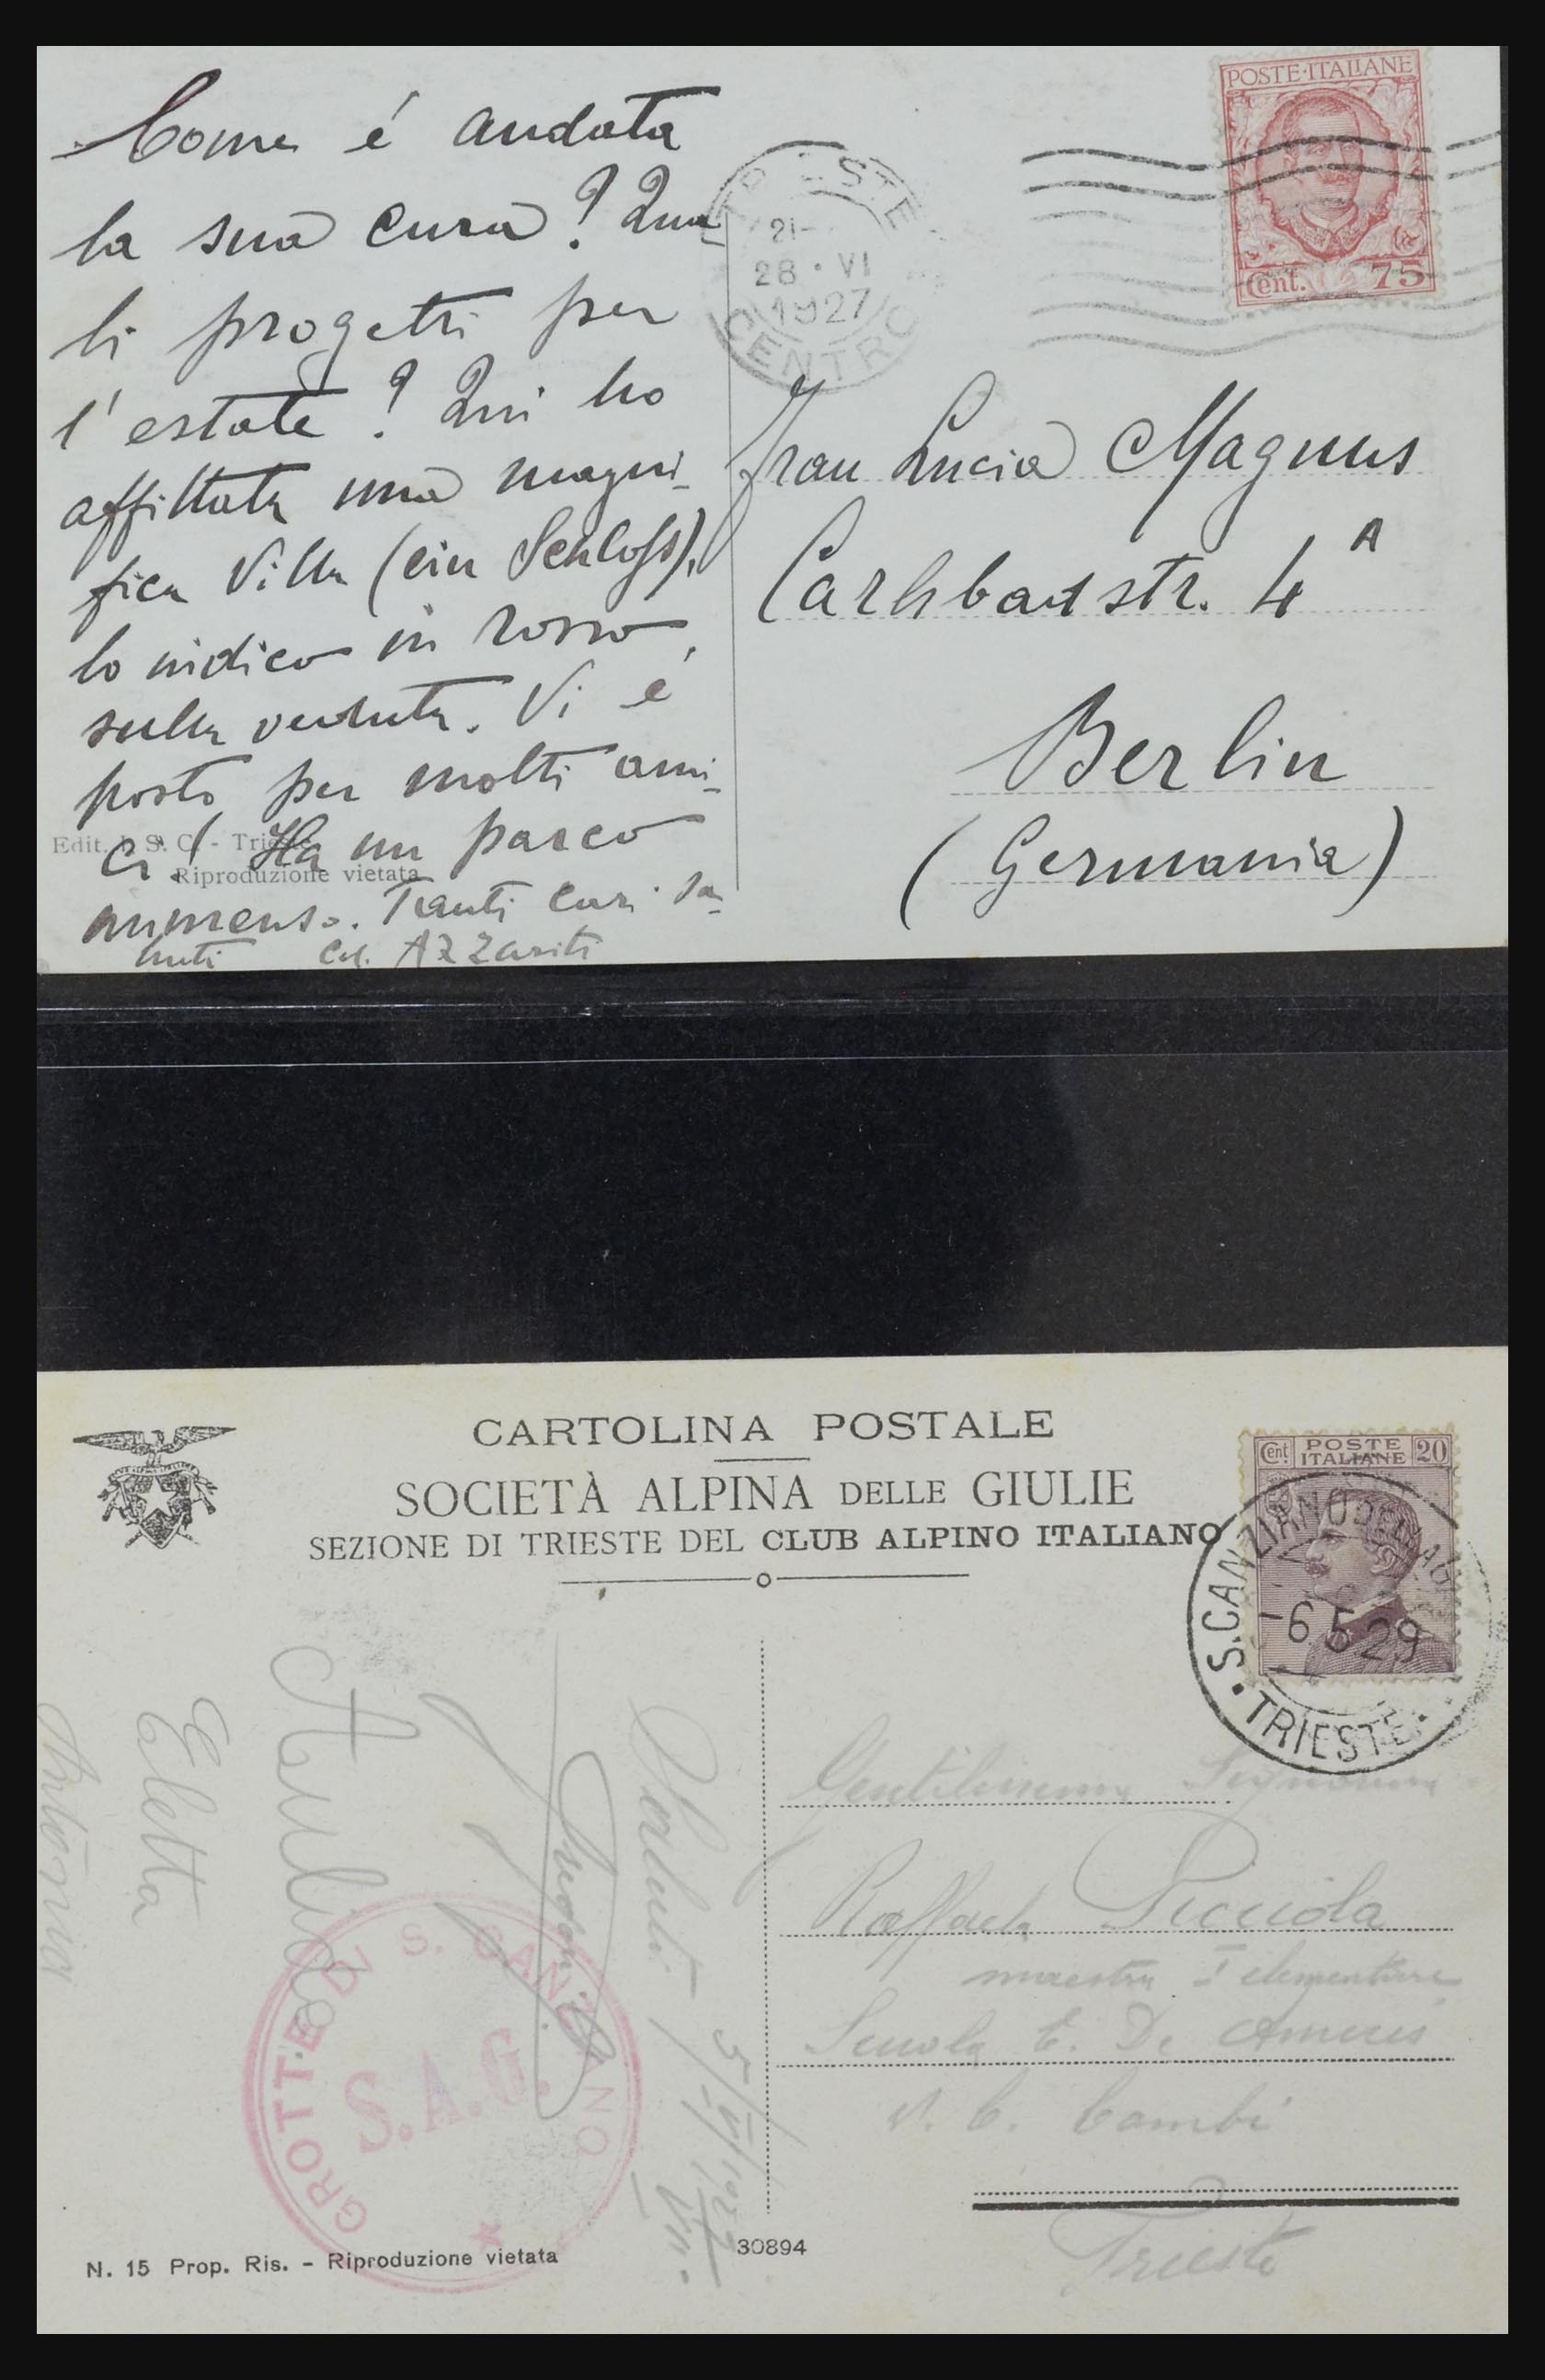 Come é andata
la sua cura? Qua-
li progetti per
l'estate? Qui ho
affittata una magni-
fica Villa (ein Schloss),
lo indico in rosso,
sulla veduta. Vi é
posto per molti ami-
ci! Ha un parco
immenso. Tanti cari sa-
luti Col. Azzariti
Edit. I. S. C. - Trieste
Riproduzione vietata
TRIESTE
21-
28 · VI
1927
CENTRO
POSTE·ITALIANE
Cent. 75
Frau Lucia Magnus
Carlsbadstr. 4 A
Berlin
(Germania)
CARTOLINA POSTALE
SOCIETÀ ALPINA DELLE GIULIE
SEZIONE DI TRIESTE DEL CLUB ALPINO ITALIANO
Cent POSTE ITALIANE 20
S. CANZIANO DELLA
-6 5 29
· TRIESTE ·
Gentilissima Signorina
Raffaela Picciola
maestra I elementare
Scuola E. De Amicis
V. C. Combi
Trieste
Saluti
5/
VII.
Eletta
Antonia
GROTTE DI S. CANZIANO
S.A.G.
N. 15 Prop. Ris. - Riproduzione vietata
30894